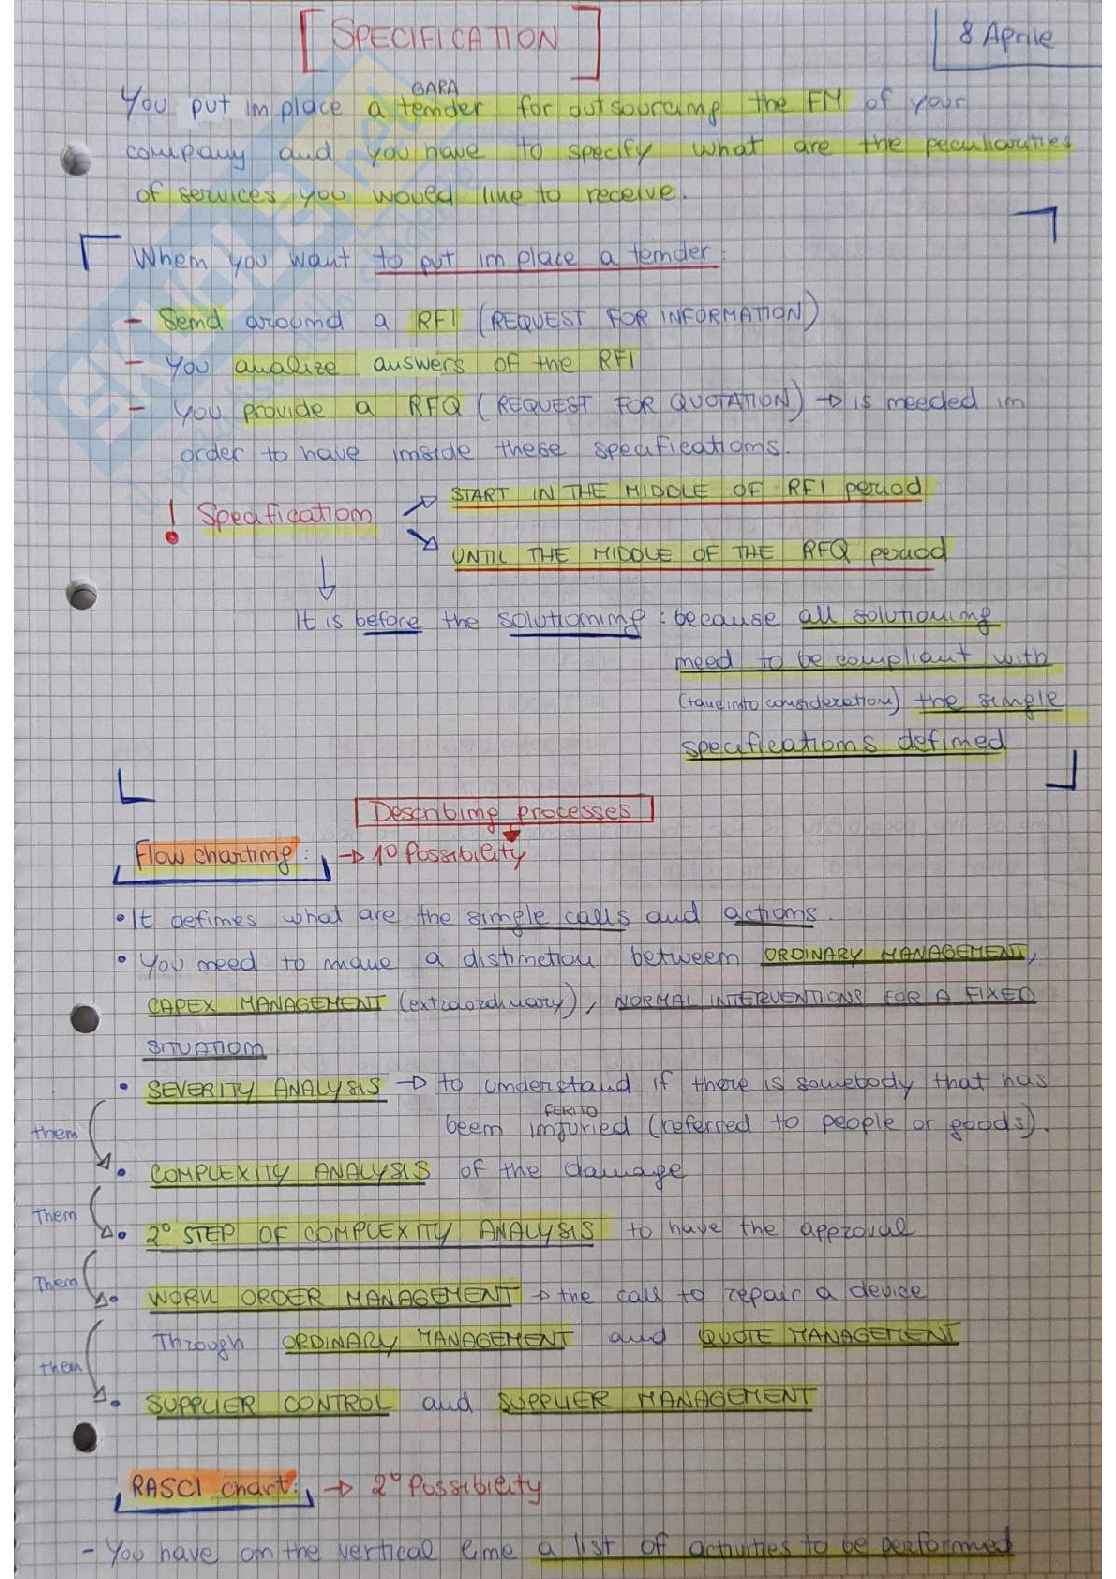 [SPECIFICATION]
8 Aprile
GARA
You put in place a tender for outsourcing the FM of your
company and you have to specify what are the peculiarities
of services you would like to receive.
When you want to put in place a tender:
- Send around a RFI (REQUEST FOR INFORMATION)
- You analize answers of the RFI
- You provide a RFQ (REQUEST FOR QUOTATION) → is needed in
order to have inside these specifications.
! Specification → START IN THE MIDDLE OF RFI period
→ UNTIL THE MIDDLE OF THE RFQ period
↓
It is before the solutioning: because all solutioning
need to be compliant with
(take into consideration) the single
specifications defined
Describing processes
Flow charting: → 1° Possibility
• It defines what are the single calls and actions.
• You need to make a distinction between ORDINARY MANAGEMENT,
CAPEX MANAGEMENT (extraordinary), NORMAL INTERVENTIONS FOR A FIXED
SITUATION
• SEVERITY ANALYSIS → to understand if there is somebody that has
FERITO
been injuried (referred to people or goods).
then
• COMPLEXITY ANALYSIS of the damage
Then
• 2° STEP OF COMPLEXITY ANALYSIS to have the approval
Then
• WORK ORDER MANAGEMENT → the call to repair a device
Through ORDINARY MANAGEMENT and QUOTE MANAGEMENT
then
• SUPPLIER CONTROL and SUPPLIER MANAGEMENT
RASCI chart: → 2° Possibility
- You have on the vertical line a list of activities to be performed